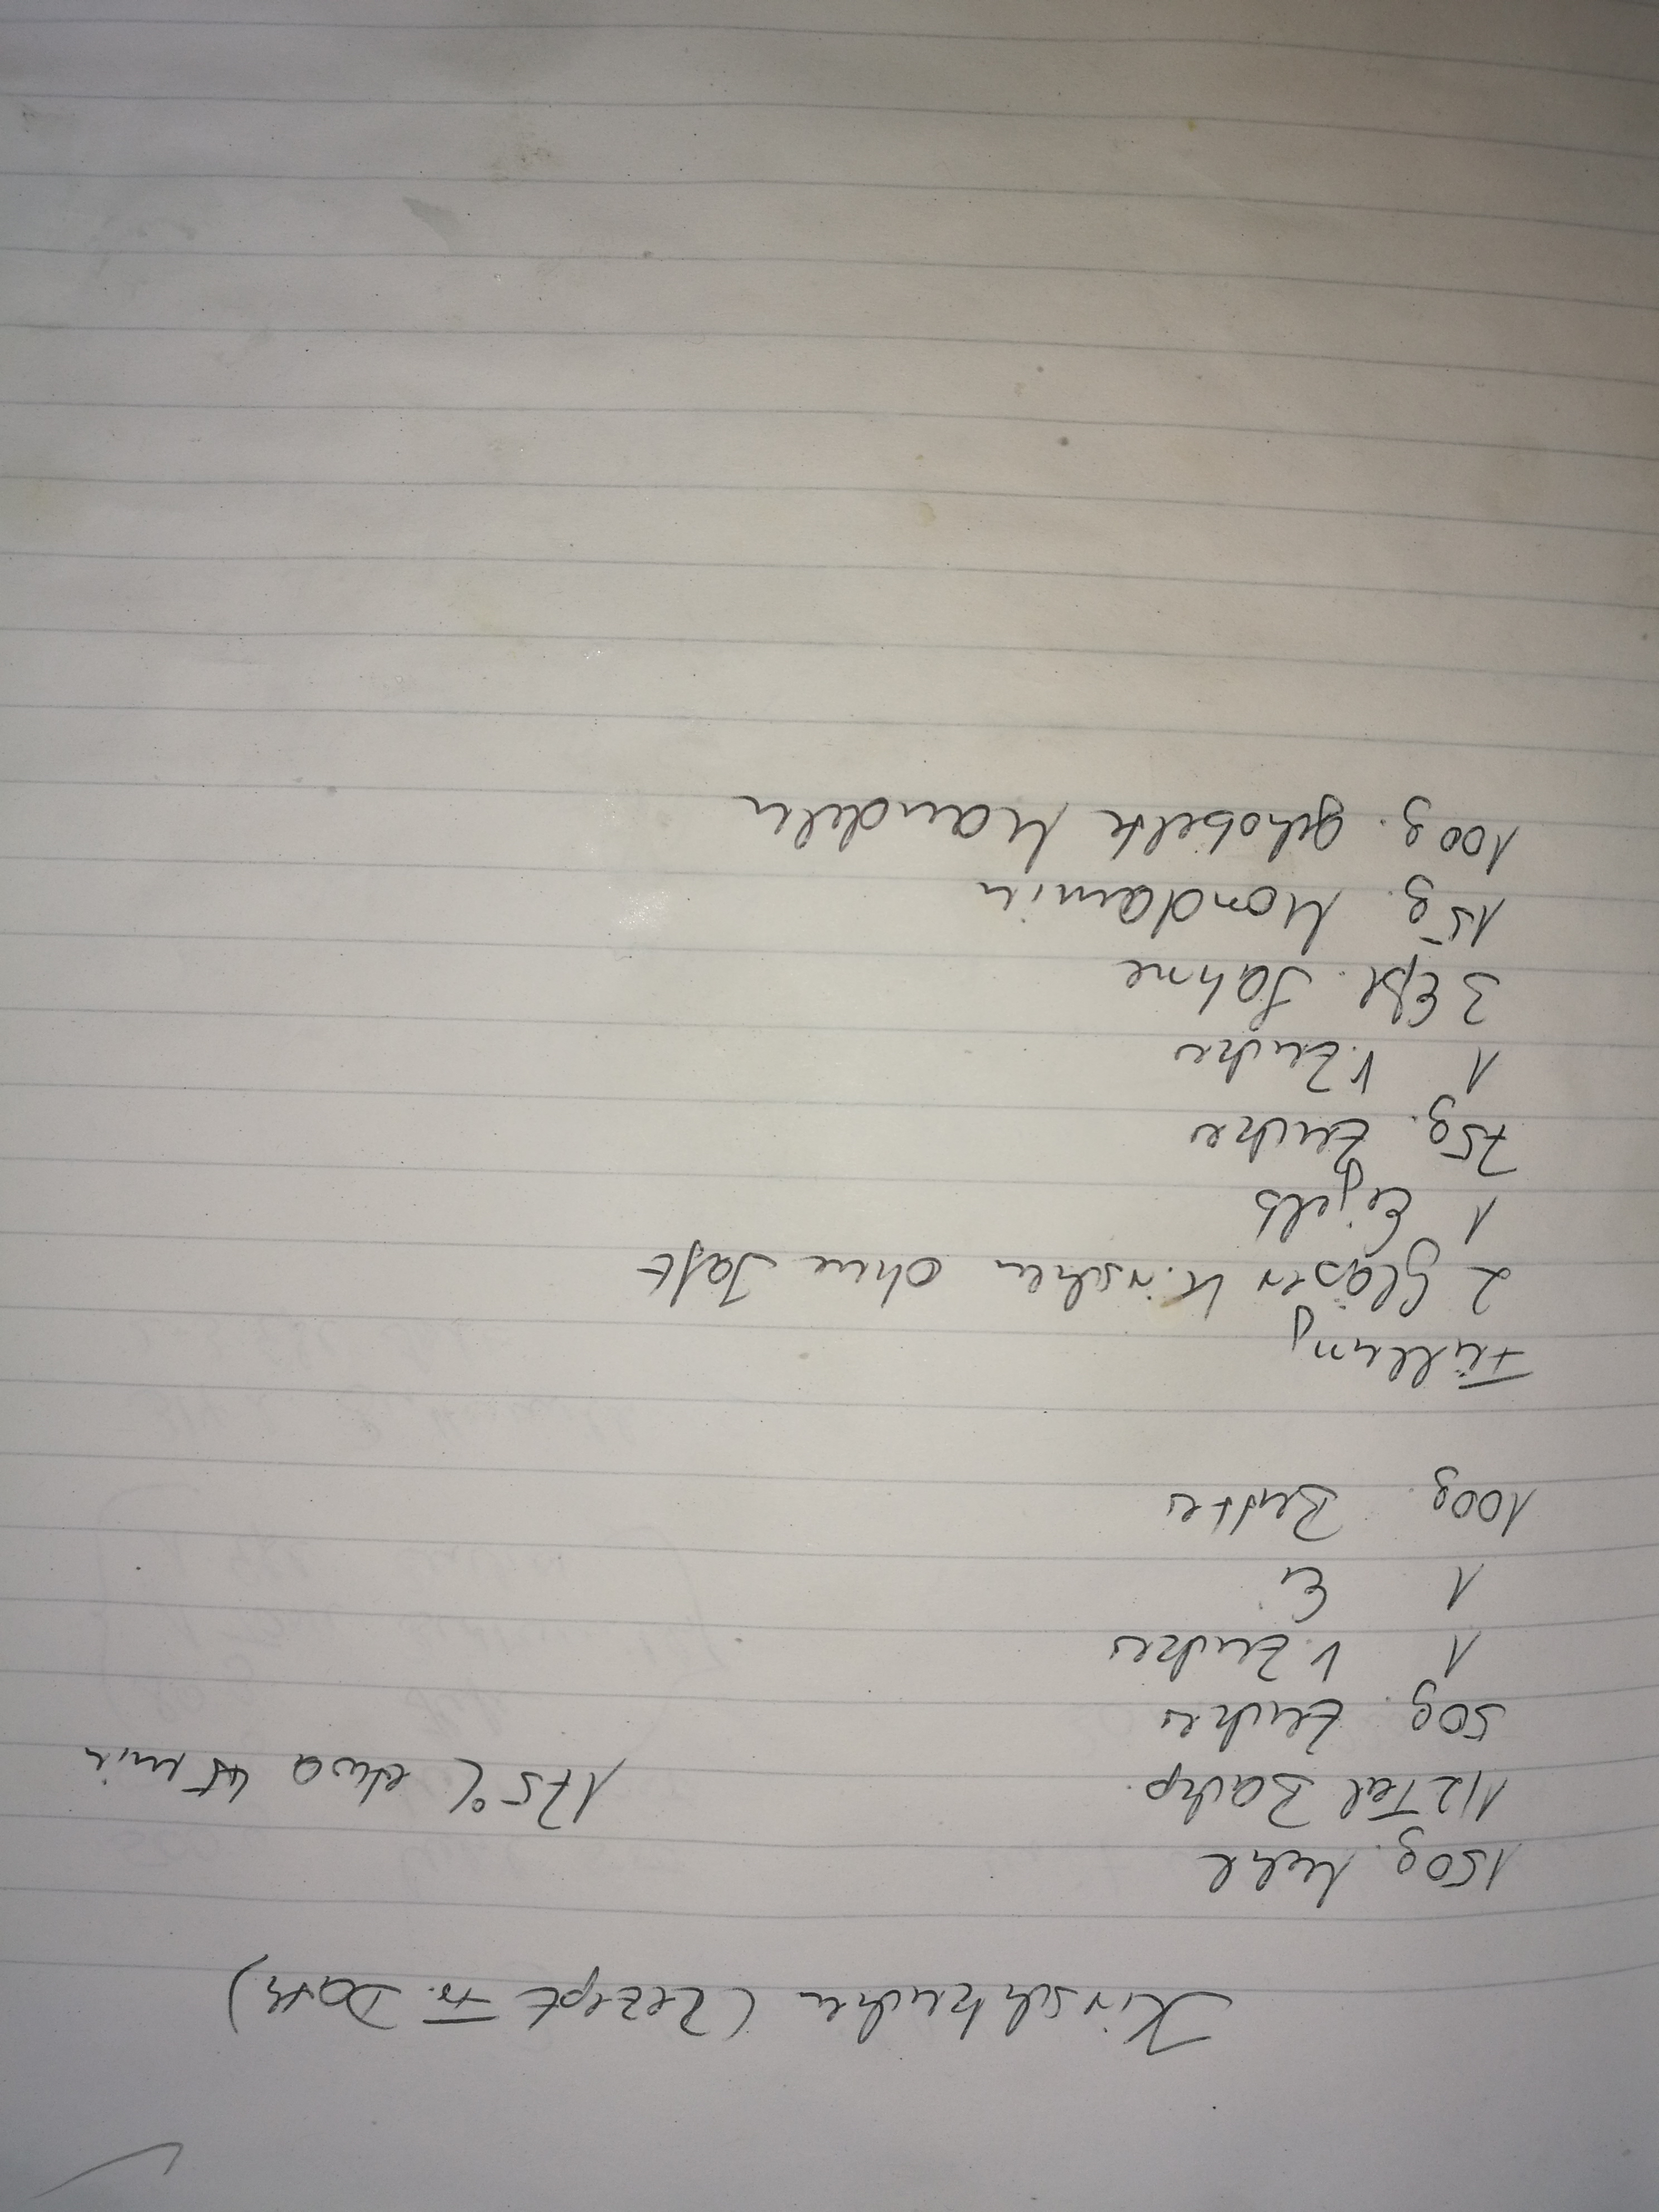 Kirschkuchen (Rezept Fr. Dath)
150g. Mehl
1/2 Teel Backp.
175°C etwa 45 min
50g. Zucker
1 V. Zucker
1 Ei
100g. Butter
Füllung
2 Gläser Kirschen ohne Saft
1 Eigelb
75g. Zucker
1 V. Zucker
3 Eßl. Sahne
15g. Mondamin
100g. gehobelte Mandeln